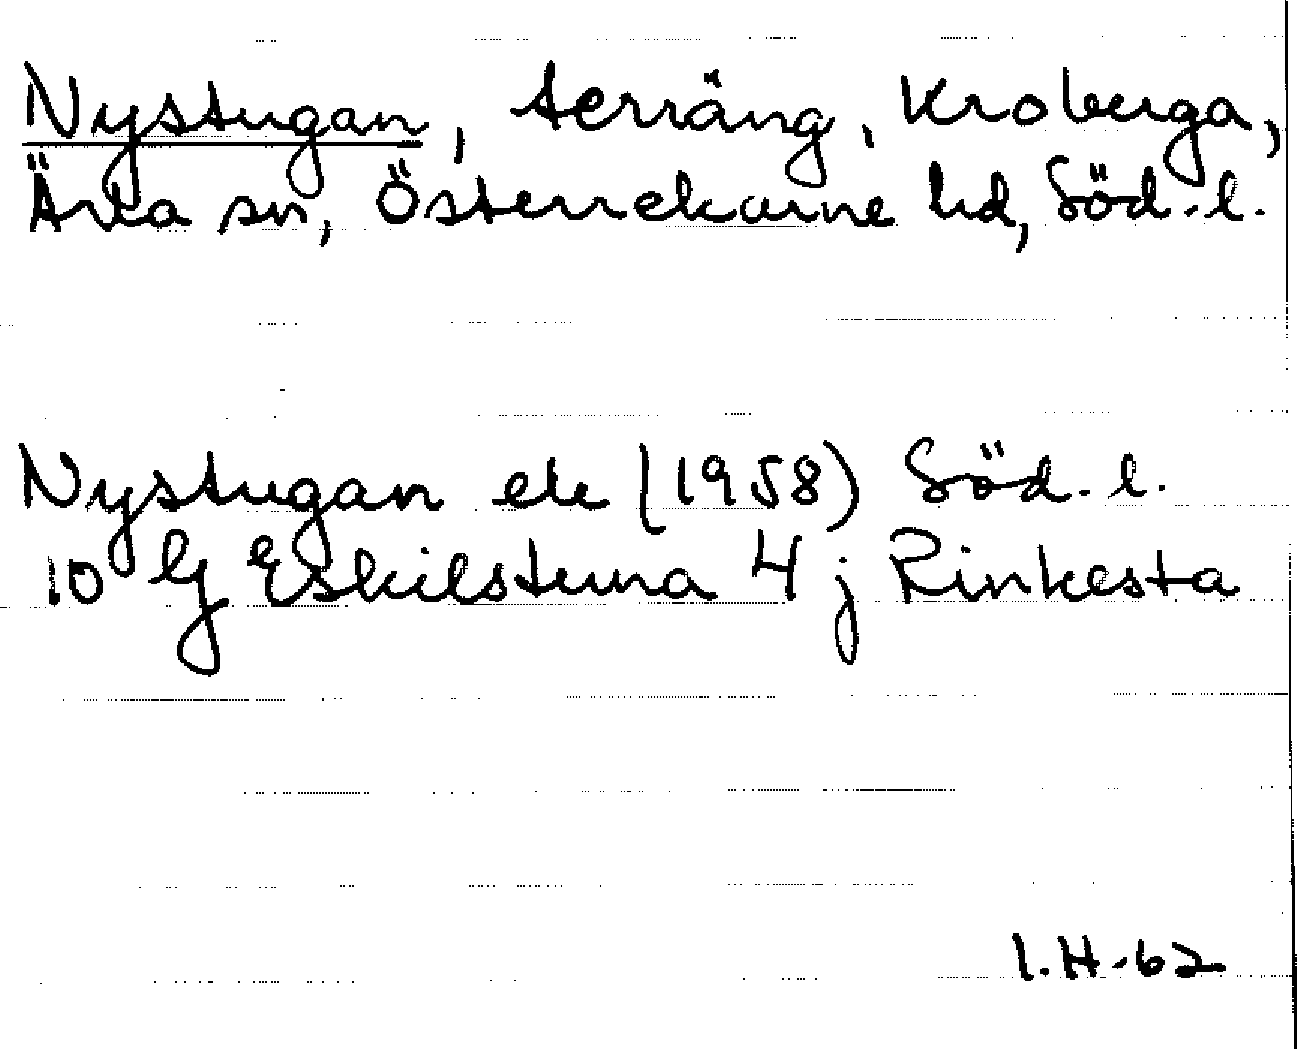 Nystugan, terräng, Kroberga,
Ärla sn, Österrekarne hd, Söd.l.
Nystugan ek (1958) Söd.l.
10 G Eskilstuna 4 j Rinkesta
I.H-62